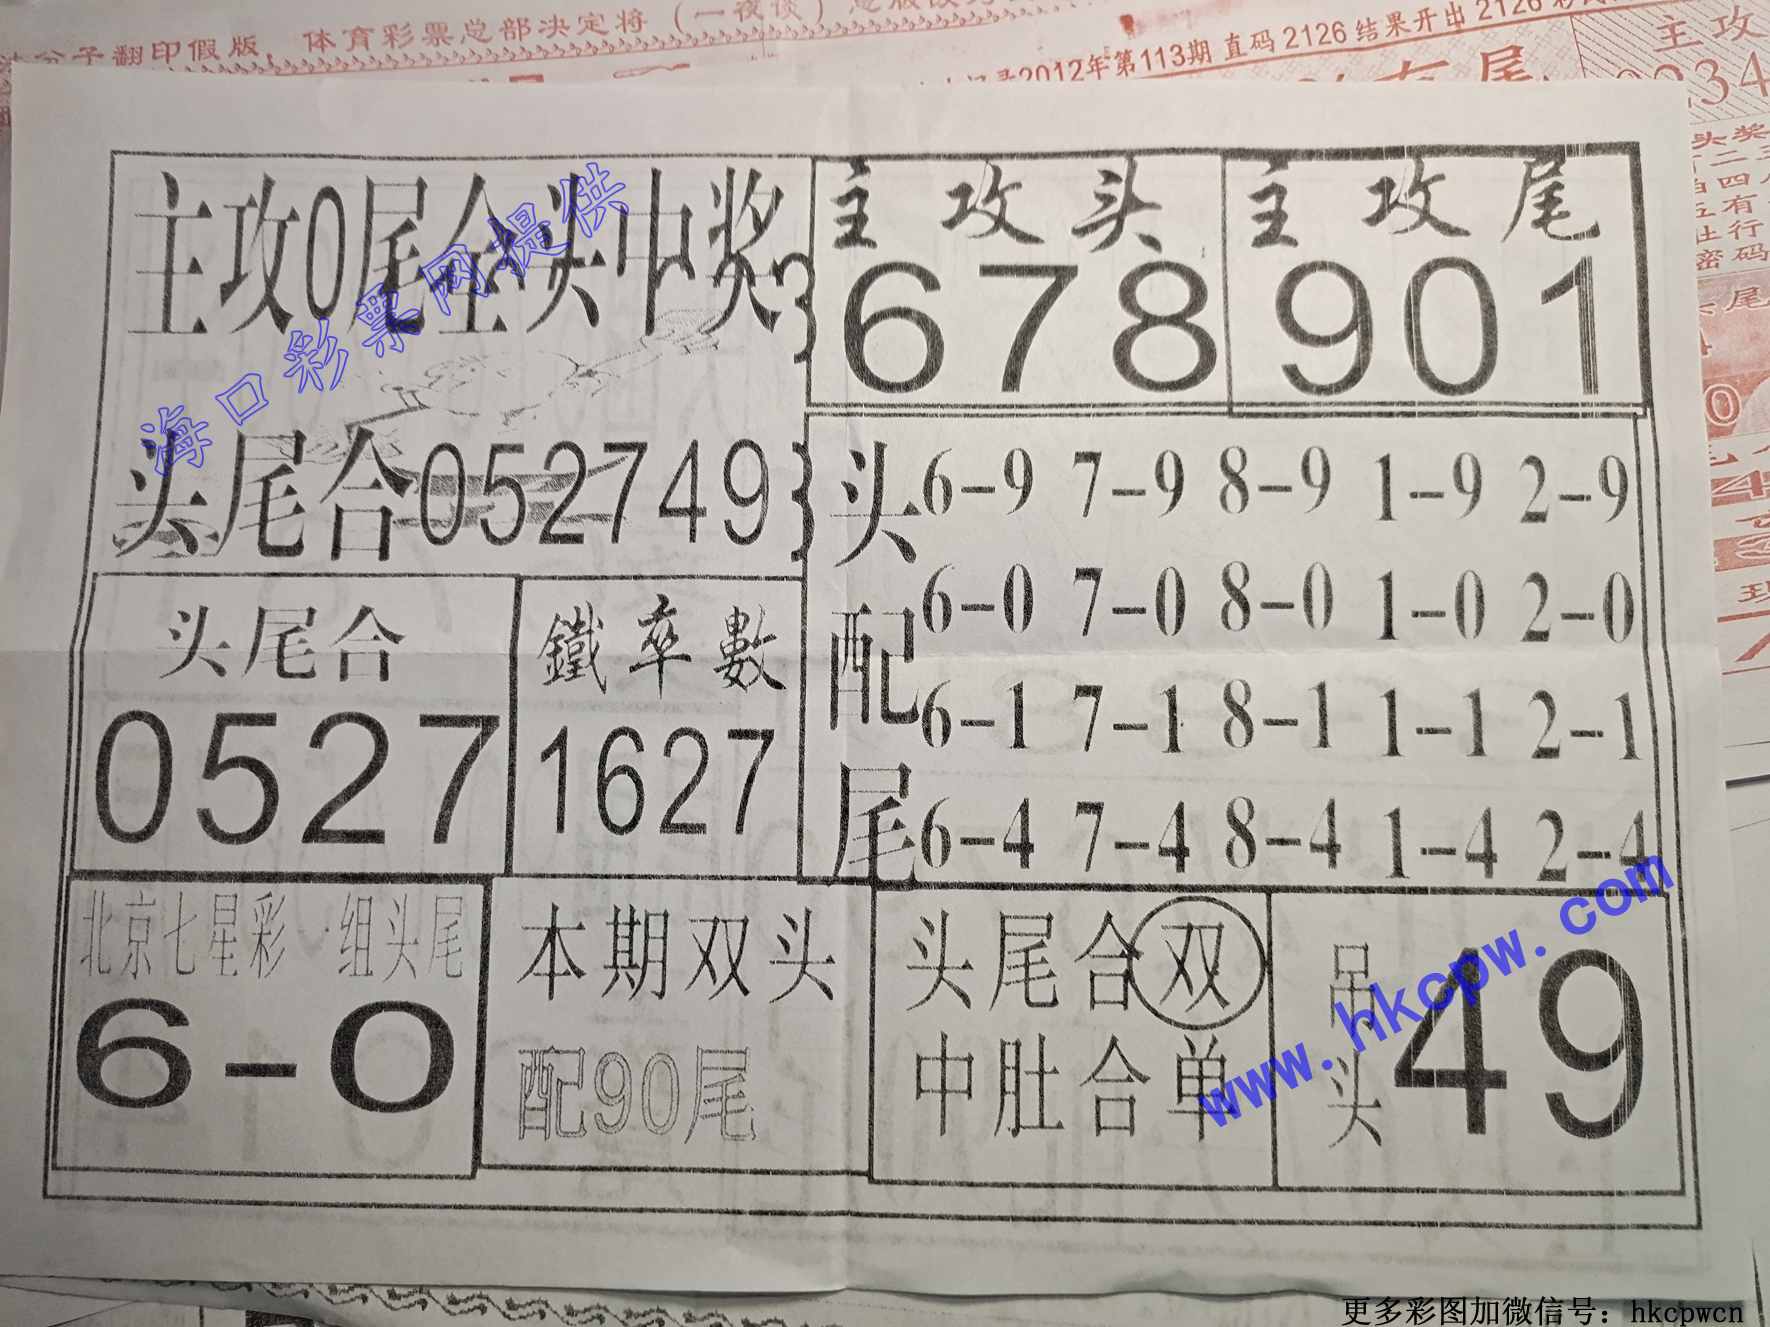 子翻印假版，体育彩票总部决定将（一夜谈）
2012年第113期 直码2126结果开出2126
主攻
主攻0尾全头中奖
头尾合052749
主攻头
678
主攻尾
901
头配尾
6-9 7-9 8-9 1-9 2-9
6-0 7-0 8-0 1-0 2-0
6-1 7-1 8-1 1-1 2-1
6-4 7-4 8-4 1-4 2-4
头尾合
0527
鐵率數
1627
北京七星彩一组头尾
6-0
本期双头
配90尾
头尾合双
中肚合单
吊头
49
海口彩票网提供
www.hkcpw.com
更多彩图加微信号：hkcpwcn